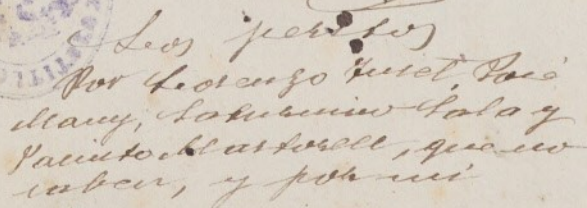 Los peritos
Por Lorenzo Turet, José
Many, Saturnino Sala y
Jacinto Martorell, que no
saben, y por mi